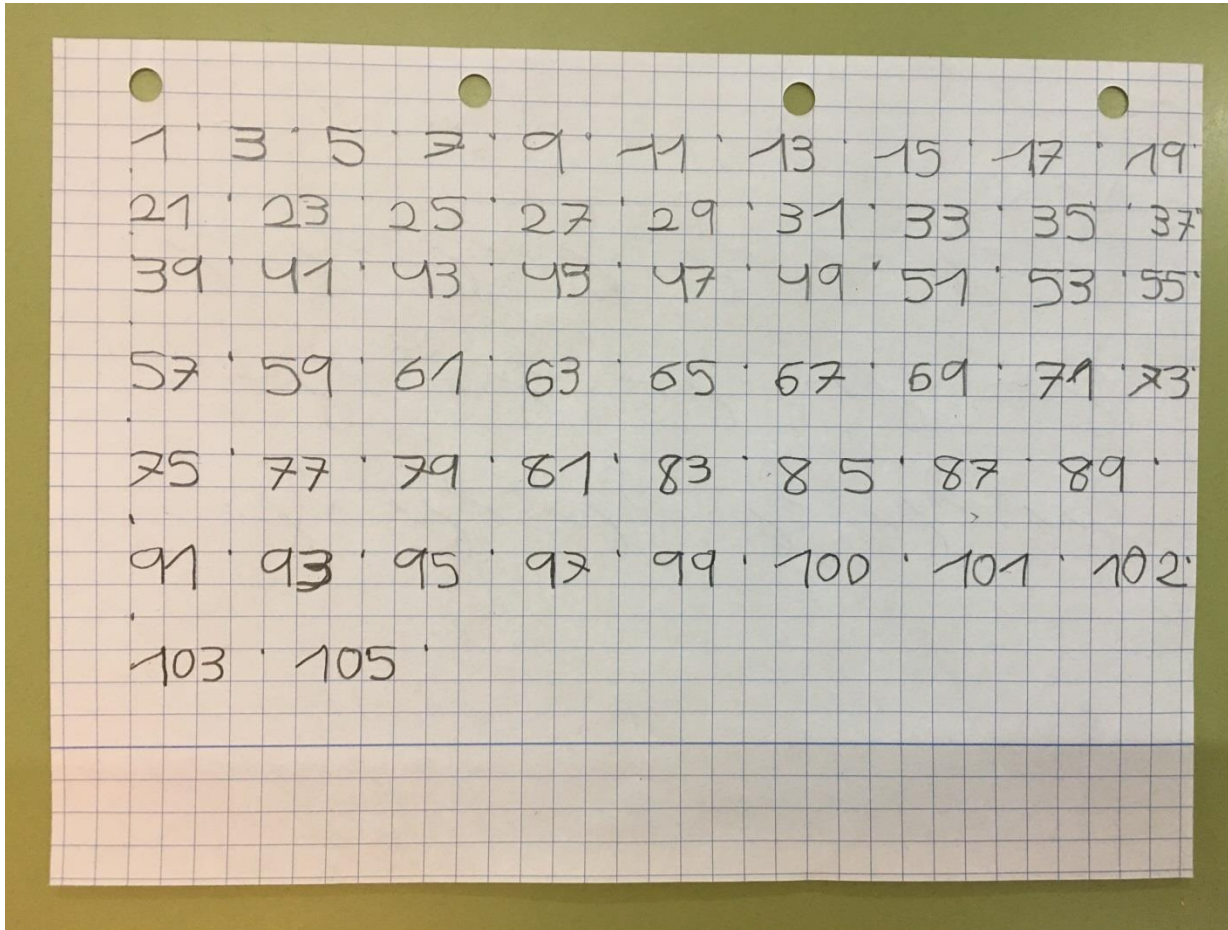 1 · 3 · 5 · 7 · 9 · 11 · 13 · 15 · 17 · 19 ·
21 · 23 · 25 · 27 · 29 · 31 · 33 · 35 · 37
39 · 41 · 43 · 45 · 47 · 49 · 51 · 53 · 55 ·
57 · 59 · 61 · 63 · 65 · 67 · 69 · 71 · 73 ·
75 · 77 · 79 · 81 · 83 · 85 · 87 · 89 ·
91 · 93 · 95 · 97 · 99 · 100 · 101 · 102 ·
103 · 105 ·